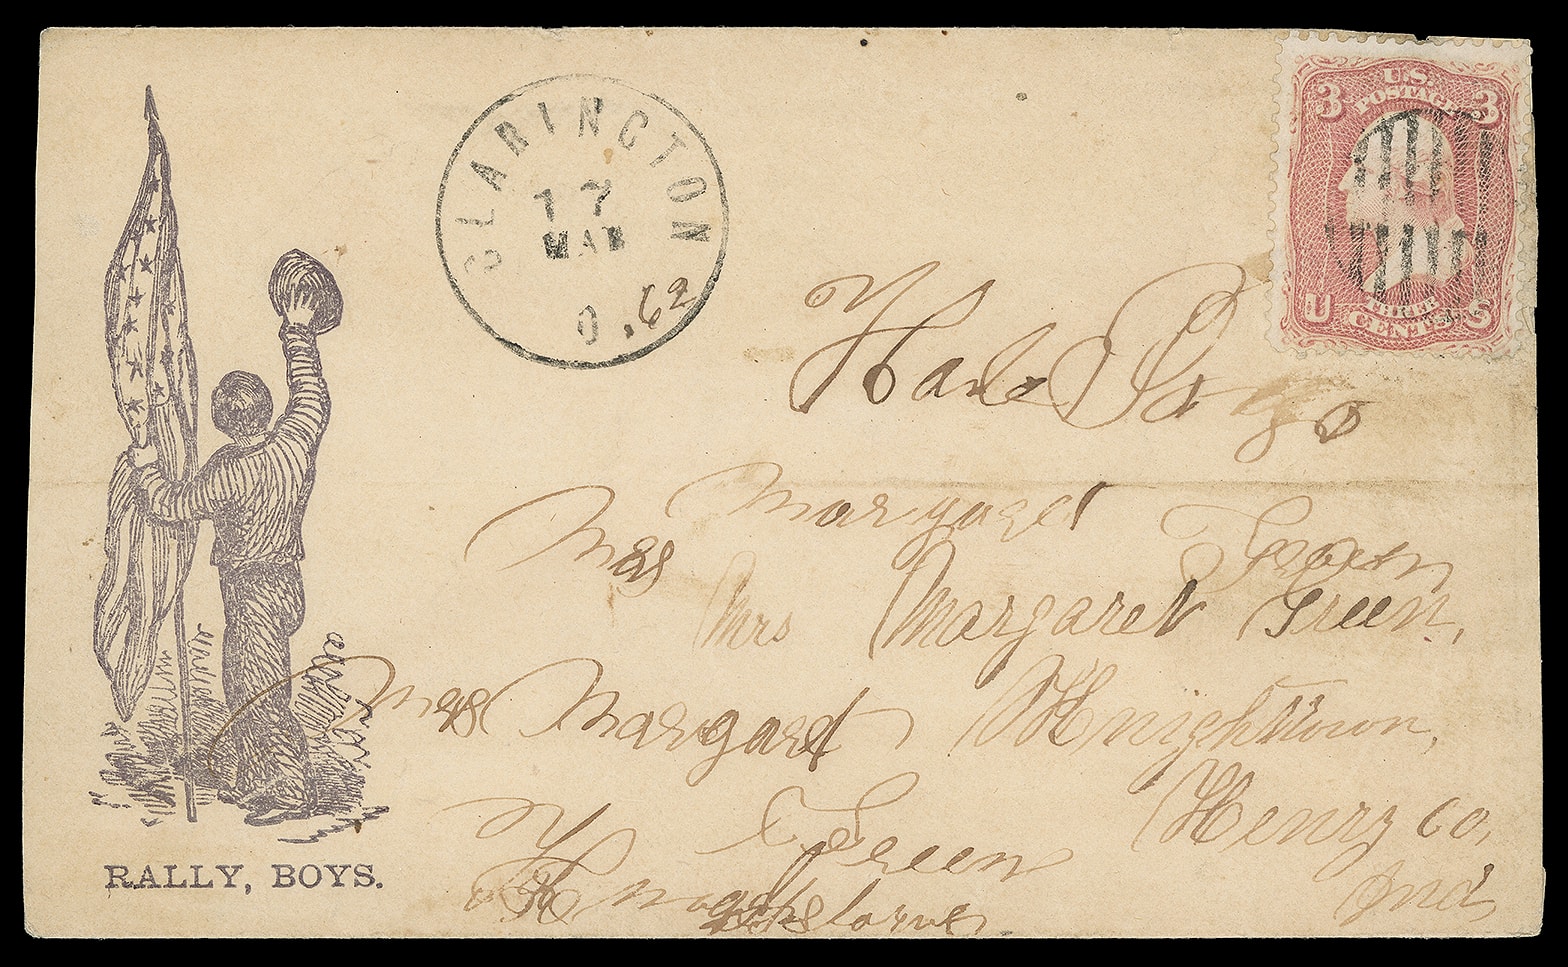 CLARINGTON
17
MAR
O. 62
U.S.
POSTAGE
3 3
THREE
U CENTS S
Margaret Green
Mrs Margaret Green,
Mrs Margaret Knightstown,
Green Henry Co,
Ind,
RALLY, BOYS.